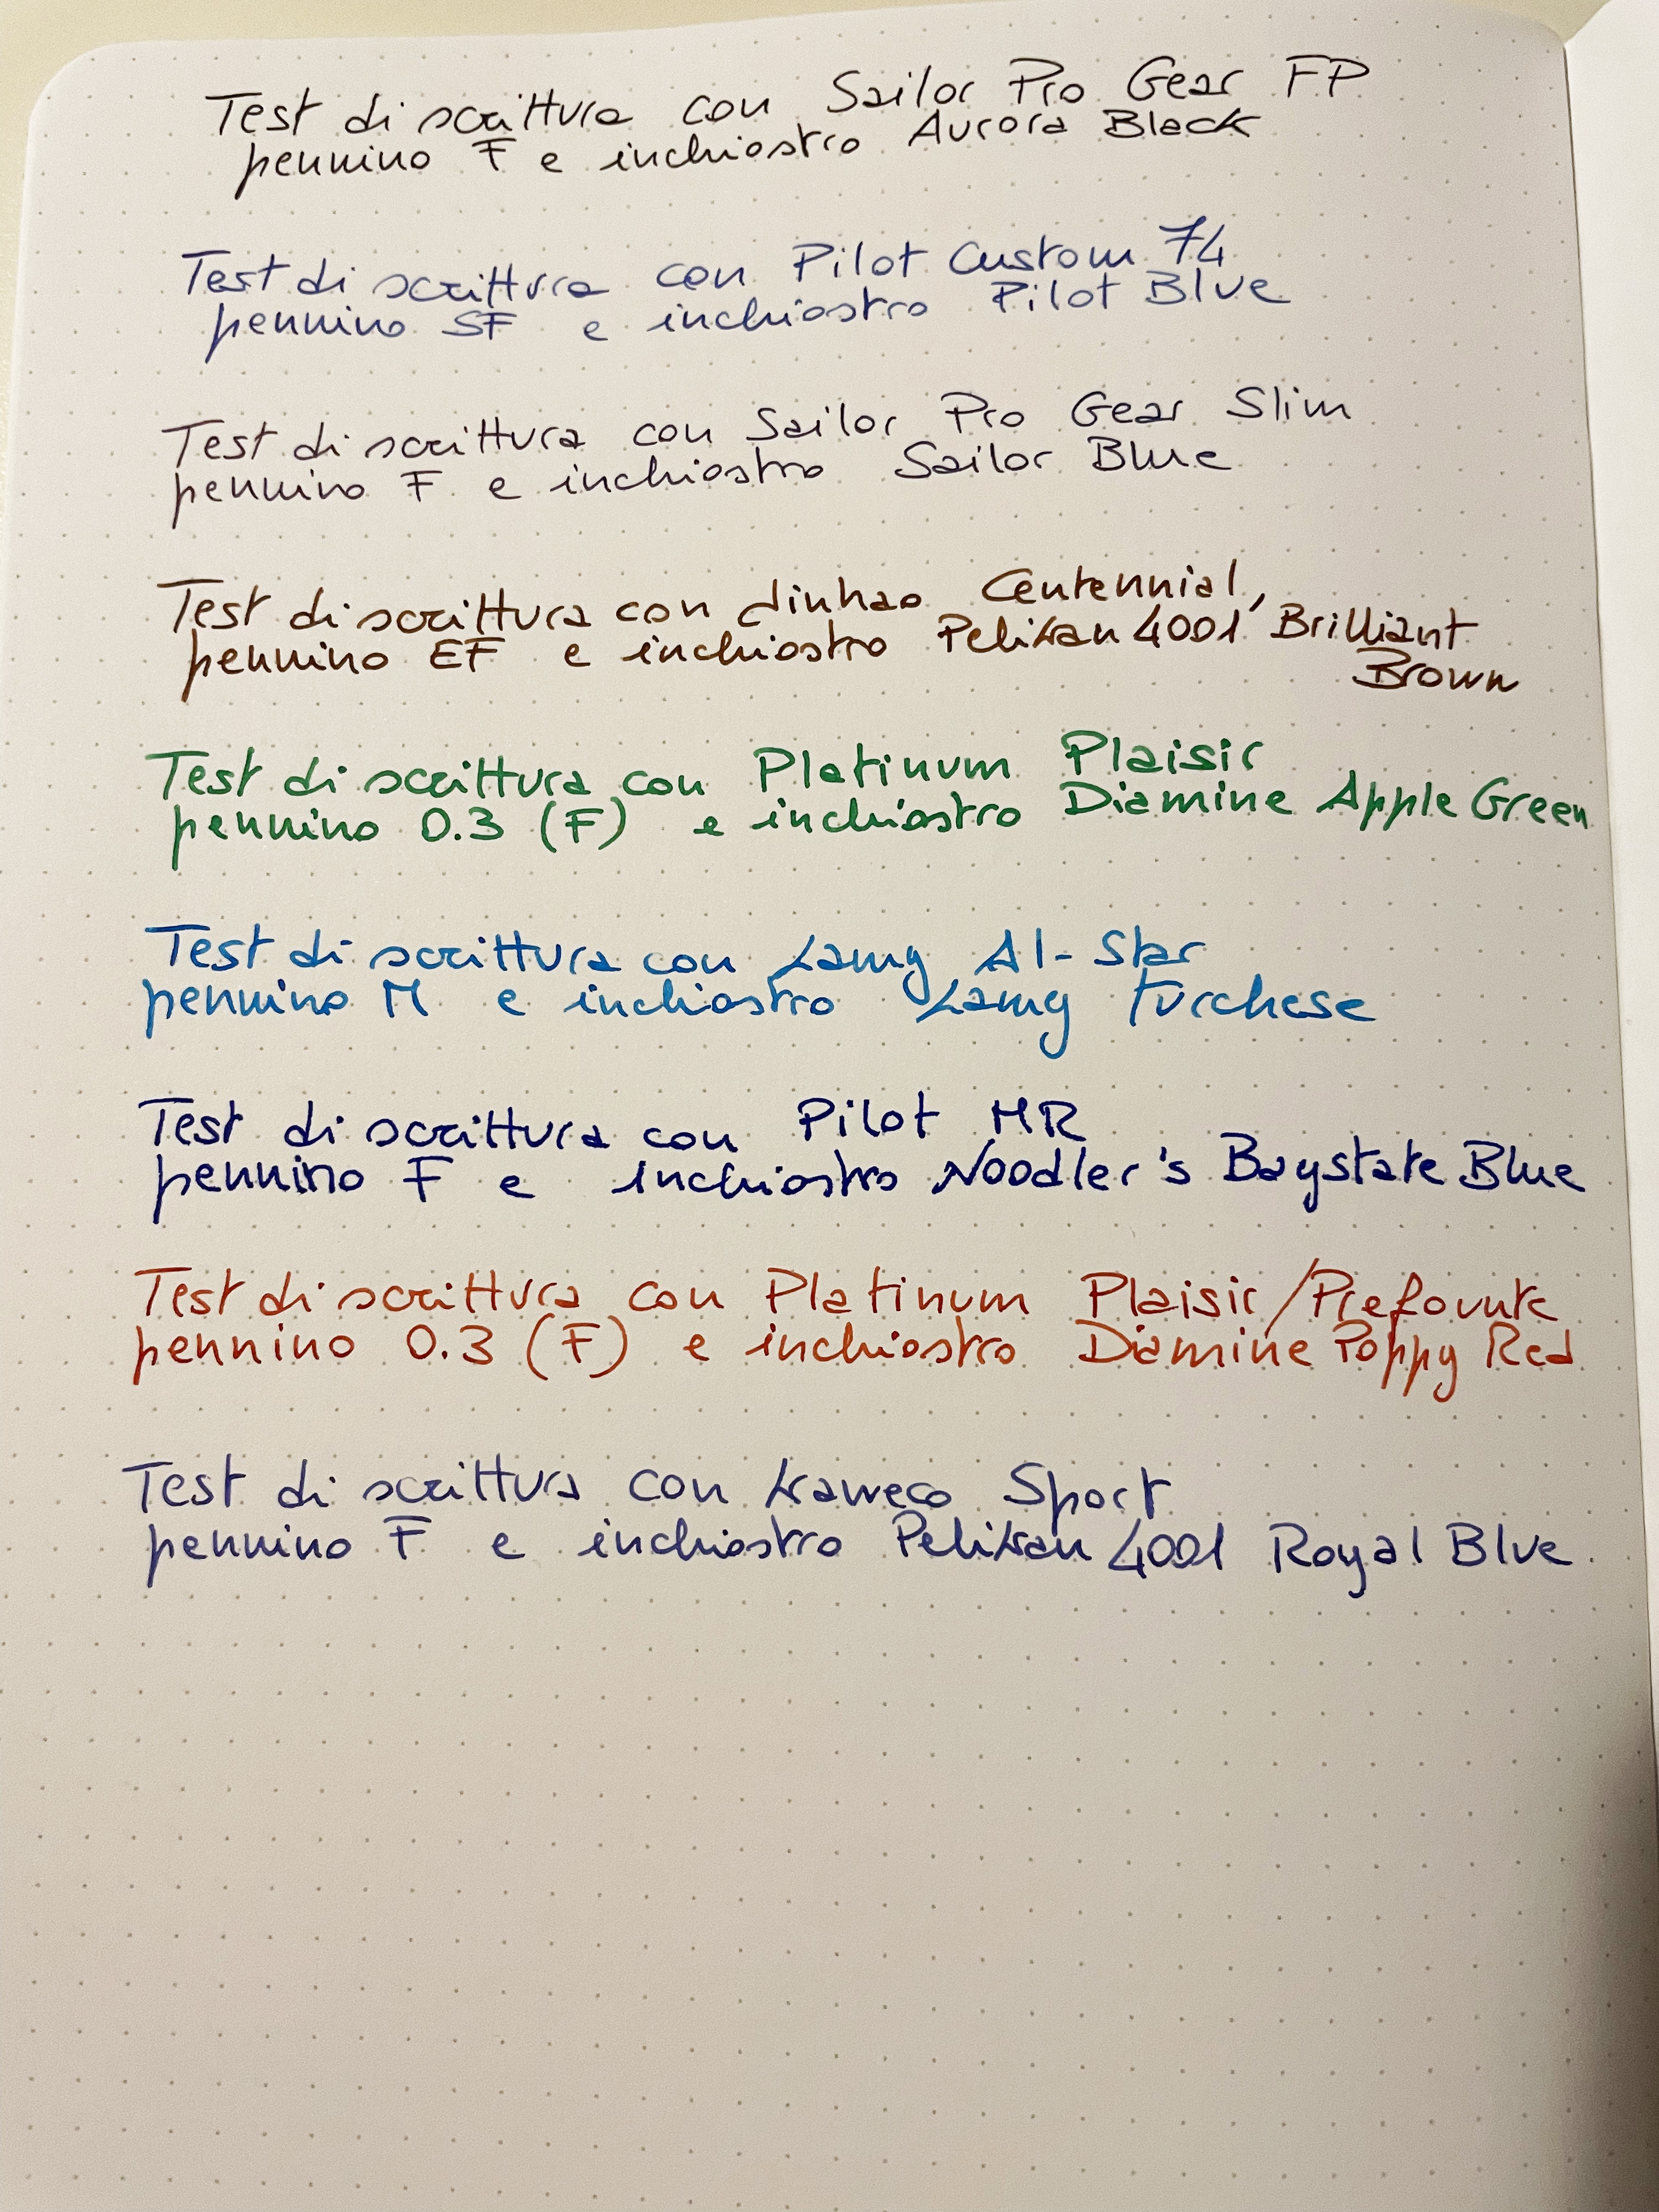 Test di scrittura con Sailor Pro Gear FP
pennino F e inchiostro Aurora Black
Test di scrittura con Pilot Custom 74
pennino SF e inchiostro Pilot Blue
Test di scrittura con Sailor Pro Gear Slim
pennino F e inchiostro Sailor Blue
Test di scrittura con Jinhao Centennial,
pennino EF e inchiostro Pelikan 4001 Brilliant
Brown
Test di scrittura con Platinum Plaisir
pennino 0.3 (F) e inchiostro Diamine Apple Green
Test di scrittura con Lamy Al-Star
pennino M e inchiostro Lamy Turchese
Test di scrittura con Pilot MR
pennino F e inchiostro Noodler's Baystate Blue
Test di scrittura con Platinum Plaisir/Prefounte
pennino 0.3 (F) e inchiostro Diamine Poppy Red
Test di scrittura con Kaweco Sport
pennino F e inchiostro Pelikan 4001 Royal Blue